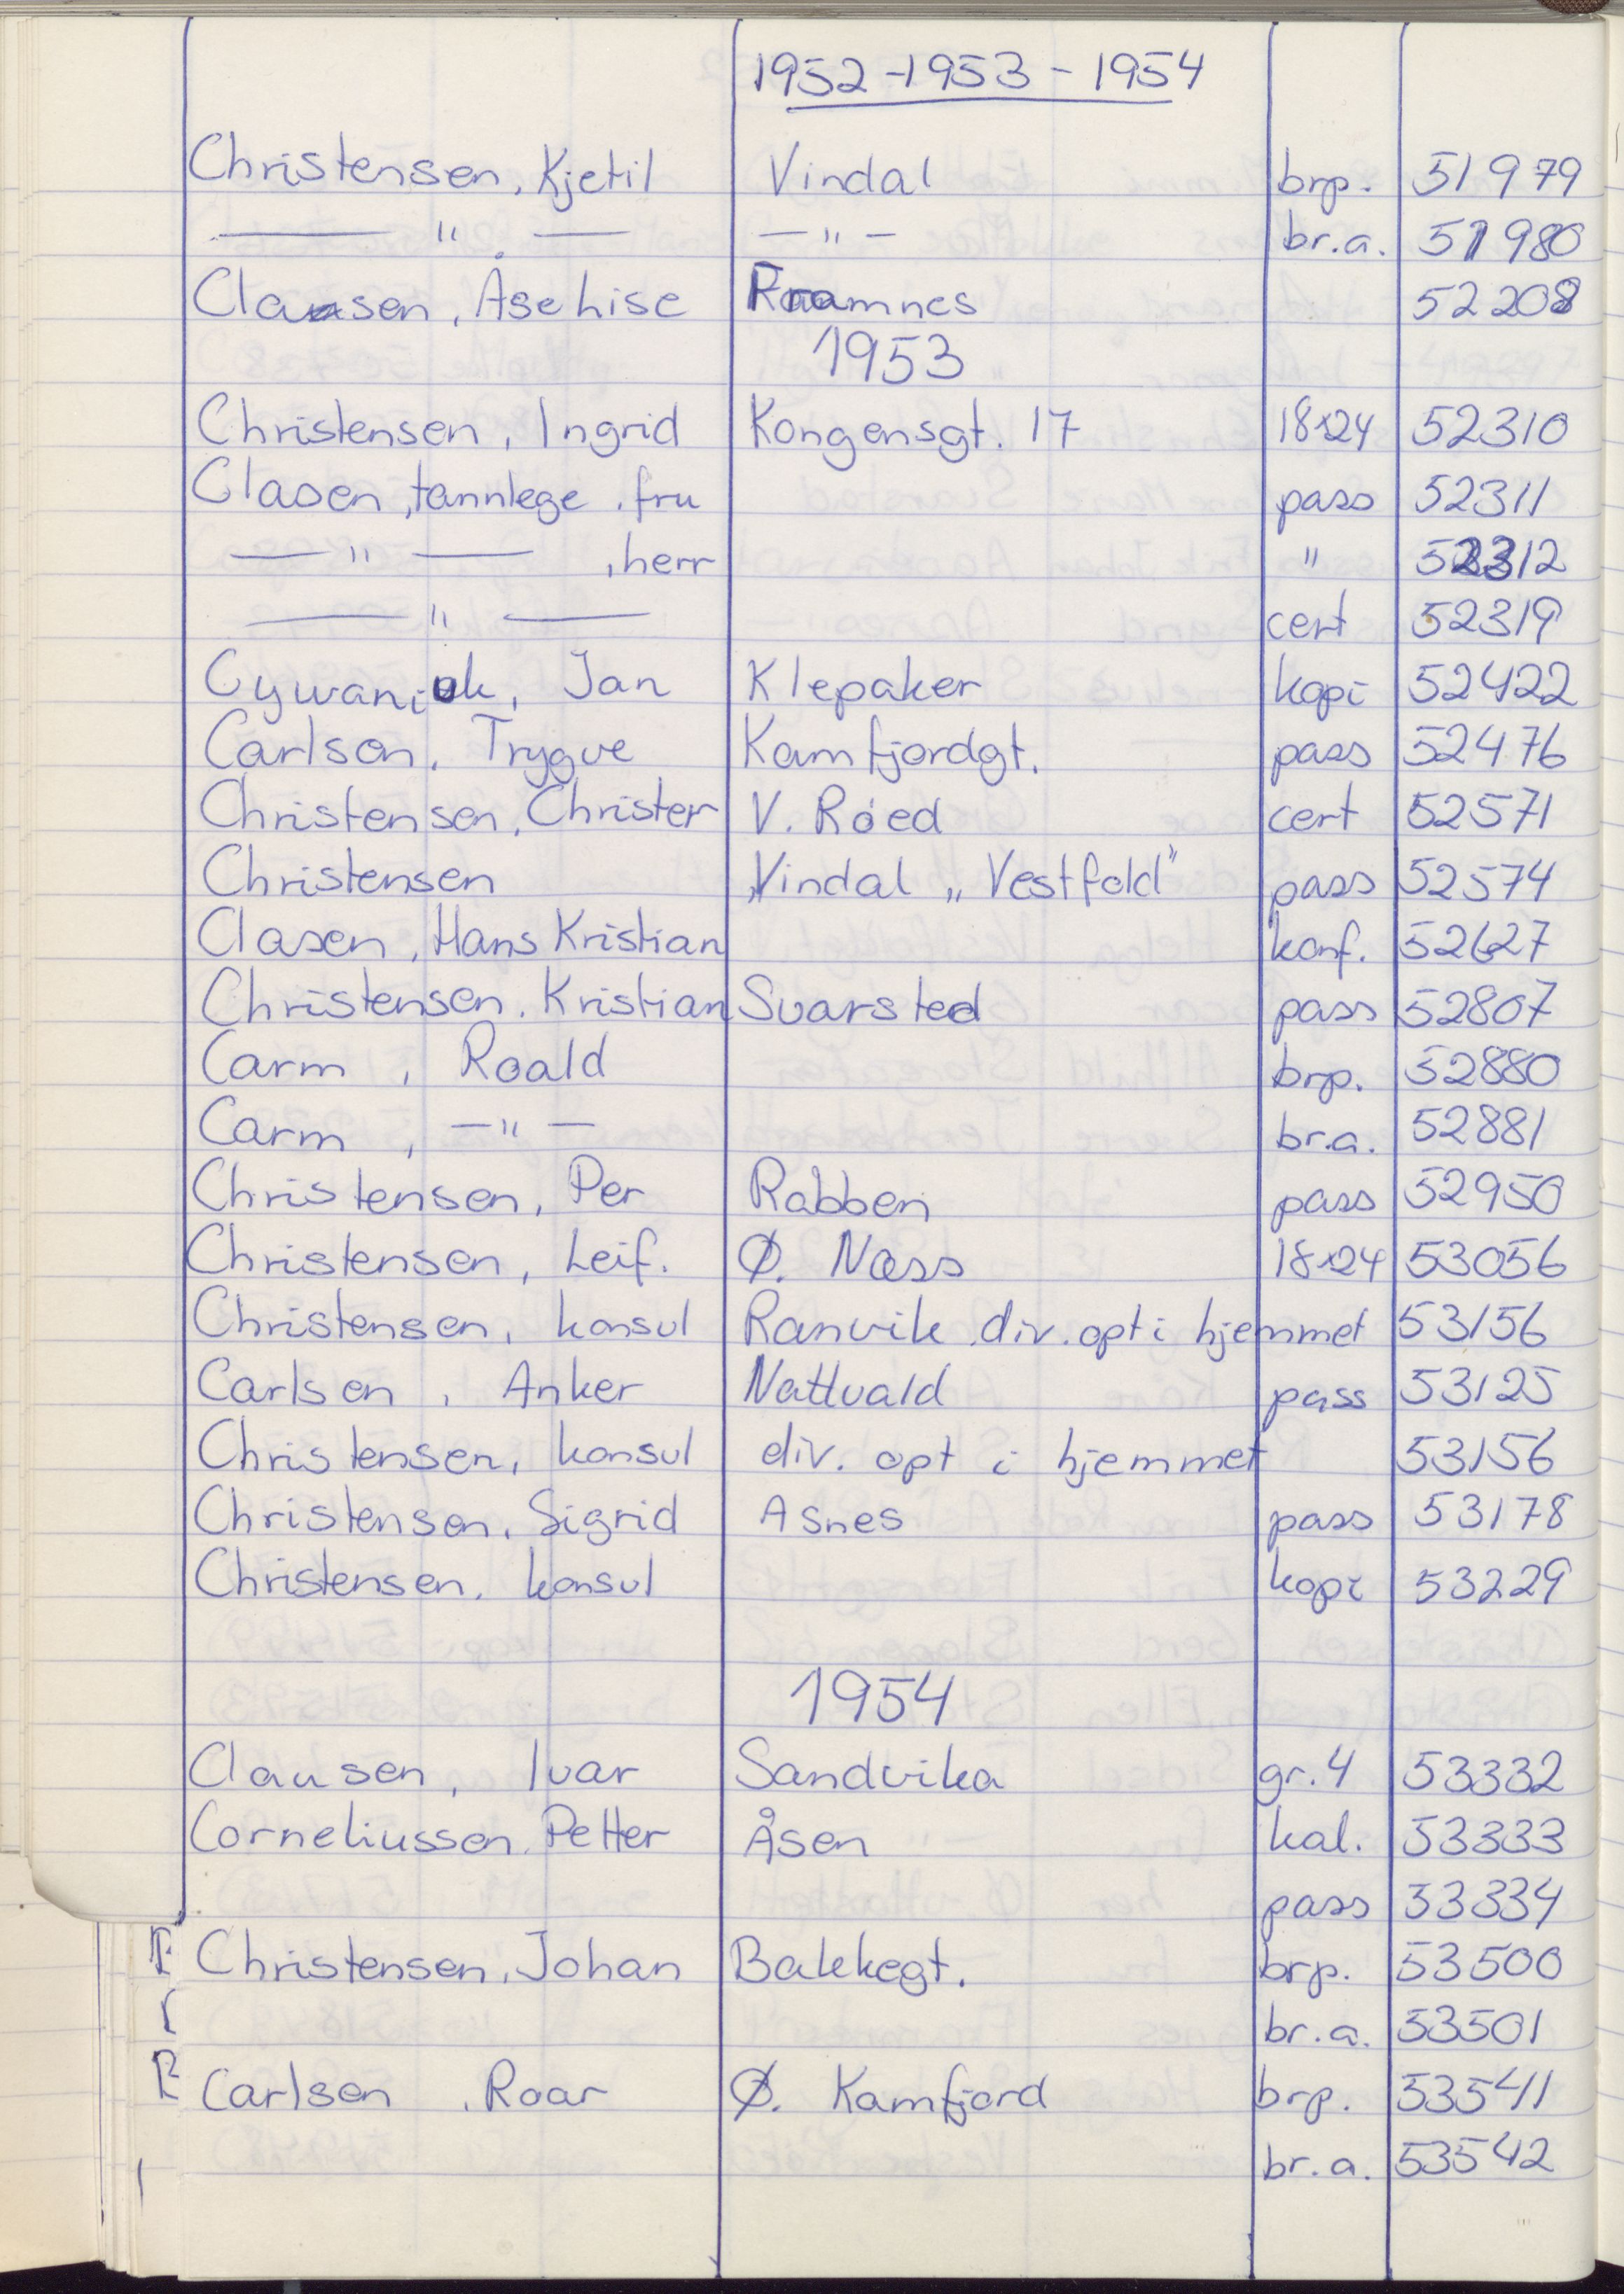 1952-1953 - 1954
Christensen, Kjetil Vindal brp. 51979
— " — — " — br.a. 51980
Clausen, Åse Lise Ramnes 52208
1953
Christensen, Ingrid Kongensgt. 17 18x24 52310
Clasen, tannlege, fru pass 52311
— " — , herr " 52312
— " — cert 52319
Cywaniuk, Jan Klepaker kopi 52422
Carlson, Trygve Kamfjordgt. pass 52476
Christensen, Christer V. Røed cert 52571
Christensen Vindal „Vestfold" pass 52574
Clasen, Hans Kristian konf. 52627
Christensen, Kristian Svarsted pass 52807
Carm, Roald brp. 52880
Carm, — " — br.a. 52881
Christensen, Per Råbben pass 52950
Christensen, Leif. Ø. Næss 18x24 53056
Christensen, konsul Ranvik div. opt i hjemmet 53156
Carlsen, Anker Nattvald pass 53125
Christensen, konsul div. opt i hjemmet 53156
Christensen, Sigrid Asnes pass 53178
Christensen, konsul kopi 53229
1954
Clausen, Ivar Sandvika gr.4 53332
Corneliussen, Petter Åsen kal. 53333
pass 53334
Christensen, Johan Bakkegt. brp. 53500
br.a. 53501
Carlsen, Roar Ø. Kamfjord brp. 53541
br.a. 53542